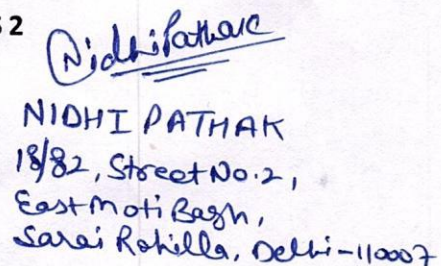 S 2
Nidhi Pathak
NIDHI PATHAK
18/82, Street No. 2,
East Moti Bagh,
Sarai Rohilla, Delhi-110007